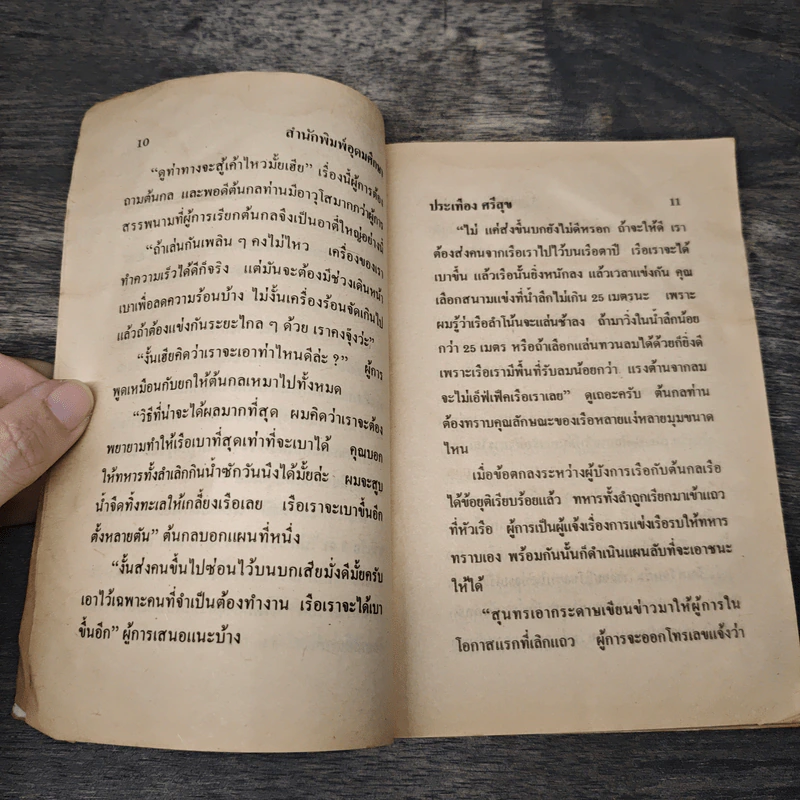 10
สำนักพิมพ์อุดมศึกษา
“ดูท่าทางจะสู้เค้าไหวมั้ยเฮีย” เรื่องนี้ผู้การต้อง
ถามต้นกล และพอดีต้นกลท่านมีอาวุโสมากกว่าผู้การ
สรรพนามที่ผู้การเรียกต้นกลจึงเป็นอาตี๋ใหญ่อย่างนี้
“ถ้าเล่นกันเพลิน ๆ คงไม่ไหว เครื่องของเรา
ทำความเร็วได้ดีก็จริง แต่มันจะต้องมีช่วงเดินหน้า
เบาเพื่อลดความร้อนบ้าง ไม่งั้นเครื่องร้อนจัดเกินไป
แล้วถ้าต้องแข่งกันระยะไกล ๆ ด้วย เราคงจุ๊งว่ะ”
“งั้นเฮียคิดว่าเราจะเอาท่าไหนดีล่ะ ?” ผู้การ
พูดเหมือนกับยกให้ต้นกลเหมาไปทั้งหมด
“วิธีที่น่าจะได้ผลมากที่สุด ผมคิดว่าเราจะต้อง
พยายามทำให้เรือเบาที่สุดเท่าที่จะเบาได้ คุณบอก
ให้ทหารทั้งลำเลิกกินน้ำซักวันนึงได้มั้ยล่ะ ผมจะสูบ
น้ำจืดทิ้งทะเลให้เกลี้ยงเรือเลย เรือเราจะเบาขึ้นอีก
ตั้งหลายตัน” ต้นกลบอกแผนที่หนึ่ง
“งั้นส่งคนขึ้นไปซ่อนไว้บนบกเสียมั่งดีมั้ยครับ
เอาไว้เฉพาะคนที่จำเป็นต้องทำงาน เรือเราจะได้เบา
ขึ้นอีก” ผู้การเสนอแนะบ้าง
ประเทือง ศรีสุข
11
“ไม่ แค่ส่งขึ้นบกยังไม่ดีหรอก ถ้าจะให้ดี เรา
ต้องส่งคนจากเรือเราไปไว้บนเรือตาปี เรือเราจะได้
เบาขึ้น แล้วเรือนั้นยิ่งหนักลง แล้วเวลาแข่งกัน คุณ
เลือกสนามแข่งที่น้ำลึกไม่เกิน 25 เมตรนะ เพราะ
ผมรู้ว่าเรือลำโน้นจะแล่นช้าลง ถ้ามาวิ่งในน้ำลึกน้อย
กว่า 25 เมตร หรือถ้าเลือกแล่นทวนลมได้ด้วยก็ยิ่งดี
เพราะเรือเรามีพื้นที่รับลมน้อยกว่า แรงต้านจากลม
จะไม่เอ็ฟเฟ็คเรือเราเลย” ดูเถอะครับ ต้นกลท่าน
ต้องทราบคุณลักษณะของเรือหลายแง่หลายมุมขนาด
ไหน
เมื่อข้อตกลงระหว่างผู้บังการเรือกับต้นกลเรือ
ได้ข้อยุติเรียบร้อยแล้ว ทหารทั้งลำถูกเรียกมาเข้าแถว
ที่หัวเรือ ผู้การเป็นผู้แจ้งเรื่องการแข่งเรือรบให้ทหาร
ทราบเอง พร้อมกันนั้นก็ดำเนินแผนลับที่จะเอาชนะ
ให้ได้
“สุนทรเอากระดาษเขียนข่าวมาให้ผู้การใน
โอกาสแรกที่เลิกแถว ผู้การจะออกโทรเลขแจ้งว่า